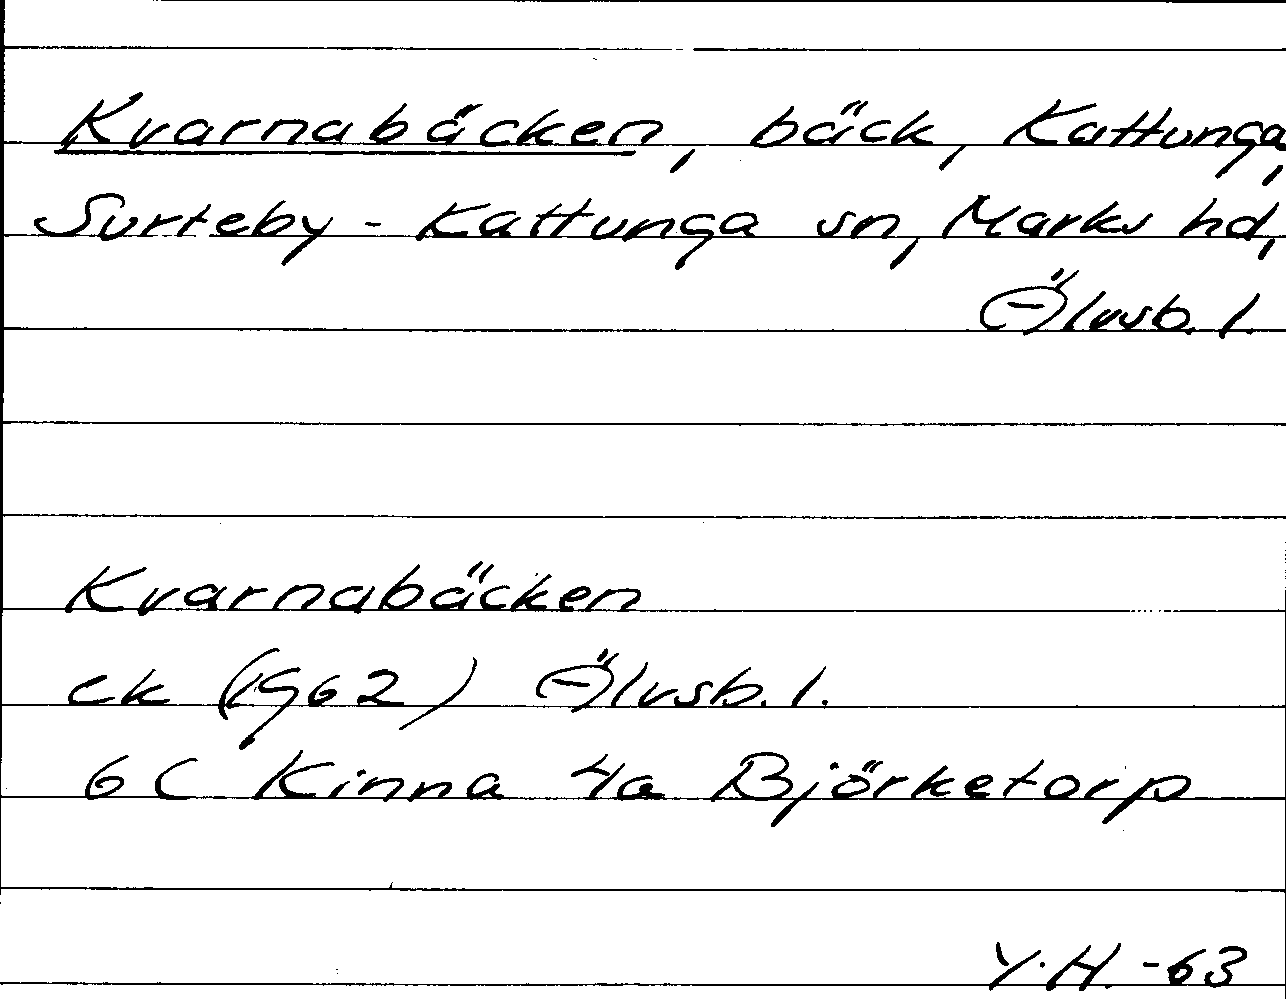 Kvarnabäcken, bäck, Kattunga,
Surteby - Kattunga sn, Marks hd,
Älvsb. l.
Kvarnabäcken
ek (1962) Älvsb. l.
6 C Kinna 4a Björketorp
Y.H. -63